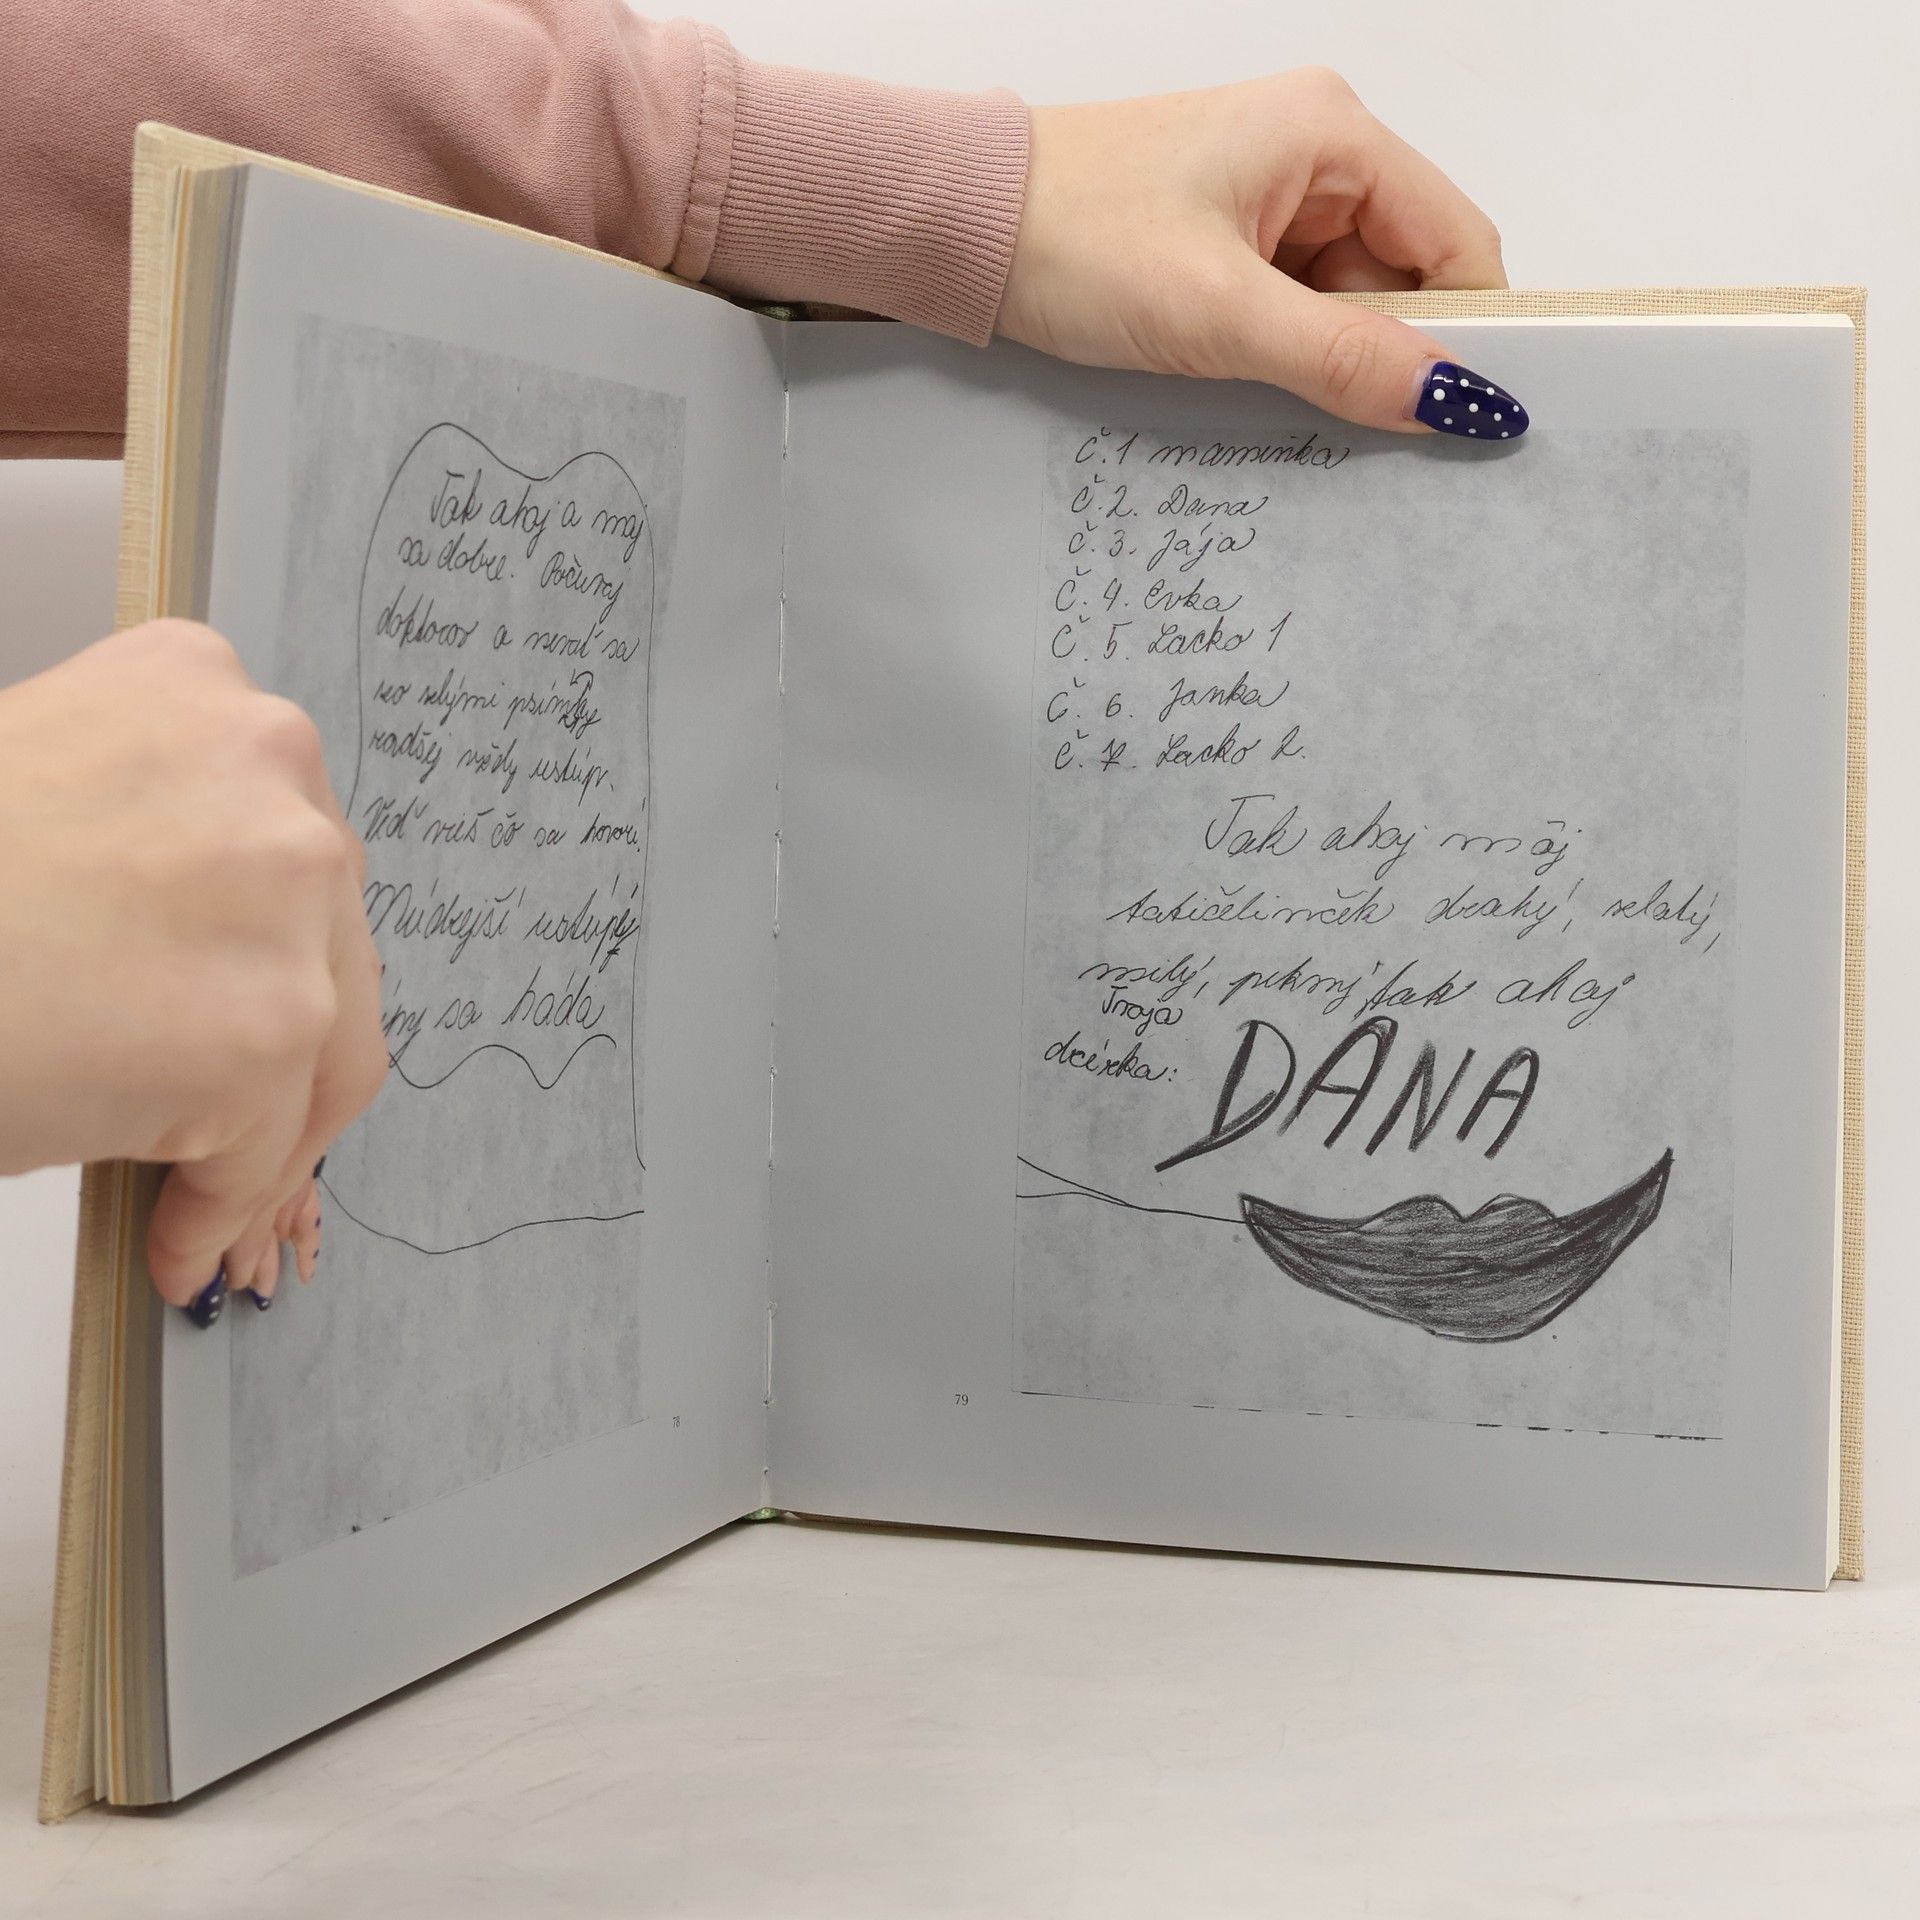 Tak ahoj a maj
sa dobre. Počúvaj
doktorov a nevaď sa
so zlými psím
radšej vždy ustúp.
Veď vieš čo sa hovorí.
Múdrejší ustúpi
sa háda
78
Č.1 maminka
Č.2. Dana
Č.3. Jája
Č.4. Evka
Č.5. Lacko 1
Č.6. Janka
Č.7. Lacko 2.
Tak ahoj môj
tatičelinček drahý, zlatý,
milý, pekný, tak ahoj
Tvoja
dcérka:
DANA
79